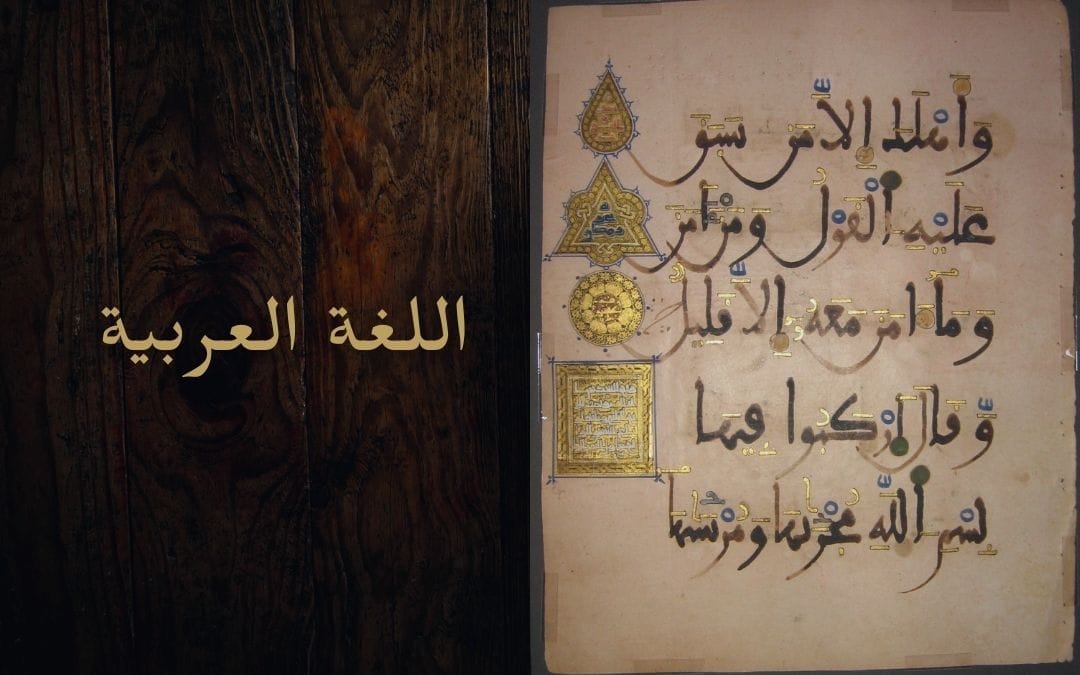 اللغة العربية
وَأَهْلَكَ إِلَّا مَن سَبَقَ
عَلَيْهِ اَلْقَوْلُ وَمَنْ اٰمَنَ
وَمَا اٰمَنَ مَعَهُ إِلَّا قَلِيلٌ
وَّقَالَ اَرْكَبُوا فِيهَا
بِسْمِ اِللَّهِ مُجْرٰىهَا وَمُرْسٰىهَا